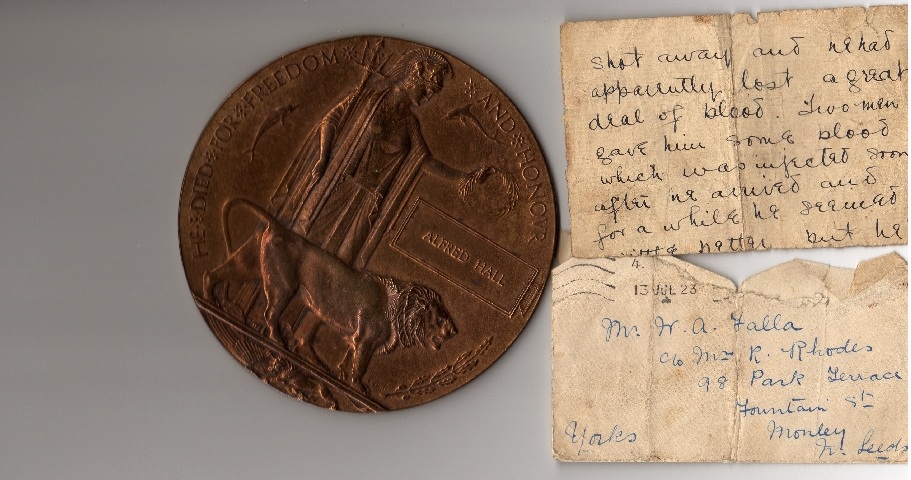 HE ✻ DIED ✻ FOR ✻ FREEDOM ✻ AND ✻ HONOUR
ALFRED HALL
shot away and he had
apparently lost a great
deal of blood. Two men
gave him some blood
which was injected soon
after he arrived and
for a while he seemed
better but he
4.
13 JUL 23
Mr W. A. Falla
c/o Mrs R. Rhodes
98 Park Terrace
Fountain St
Morley
Nr. Leeds
Yorks